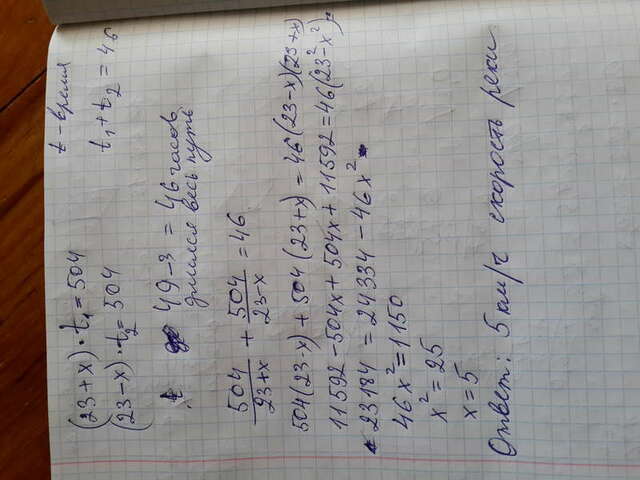 t - время
(23+x)·t₁=504
(23-x)·t₂=504
t₁+t₂=46
49-3=46 часов
длился весь путь
504/(23+x) + 504/(23-x) = 46
504(23-x)+504(23+x)=46(23-x)(23+x)
11592-504x+504x+11592=46(23²-x²)
23184=24334-46x²
46x²=1150
x²=25
x=5
Ответ: 5 км/ч скорость реки